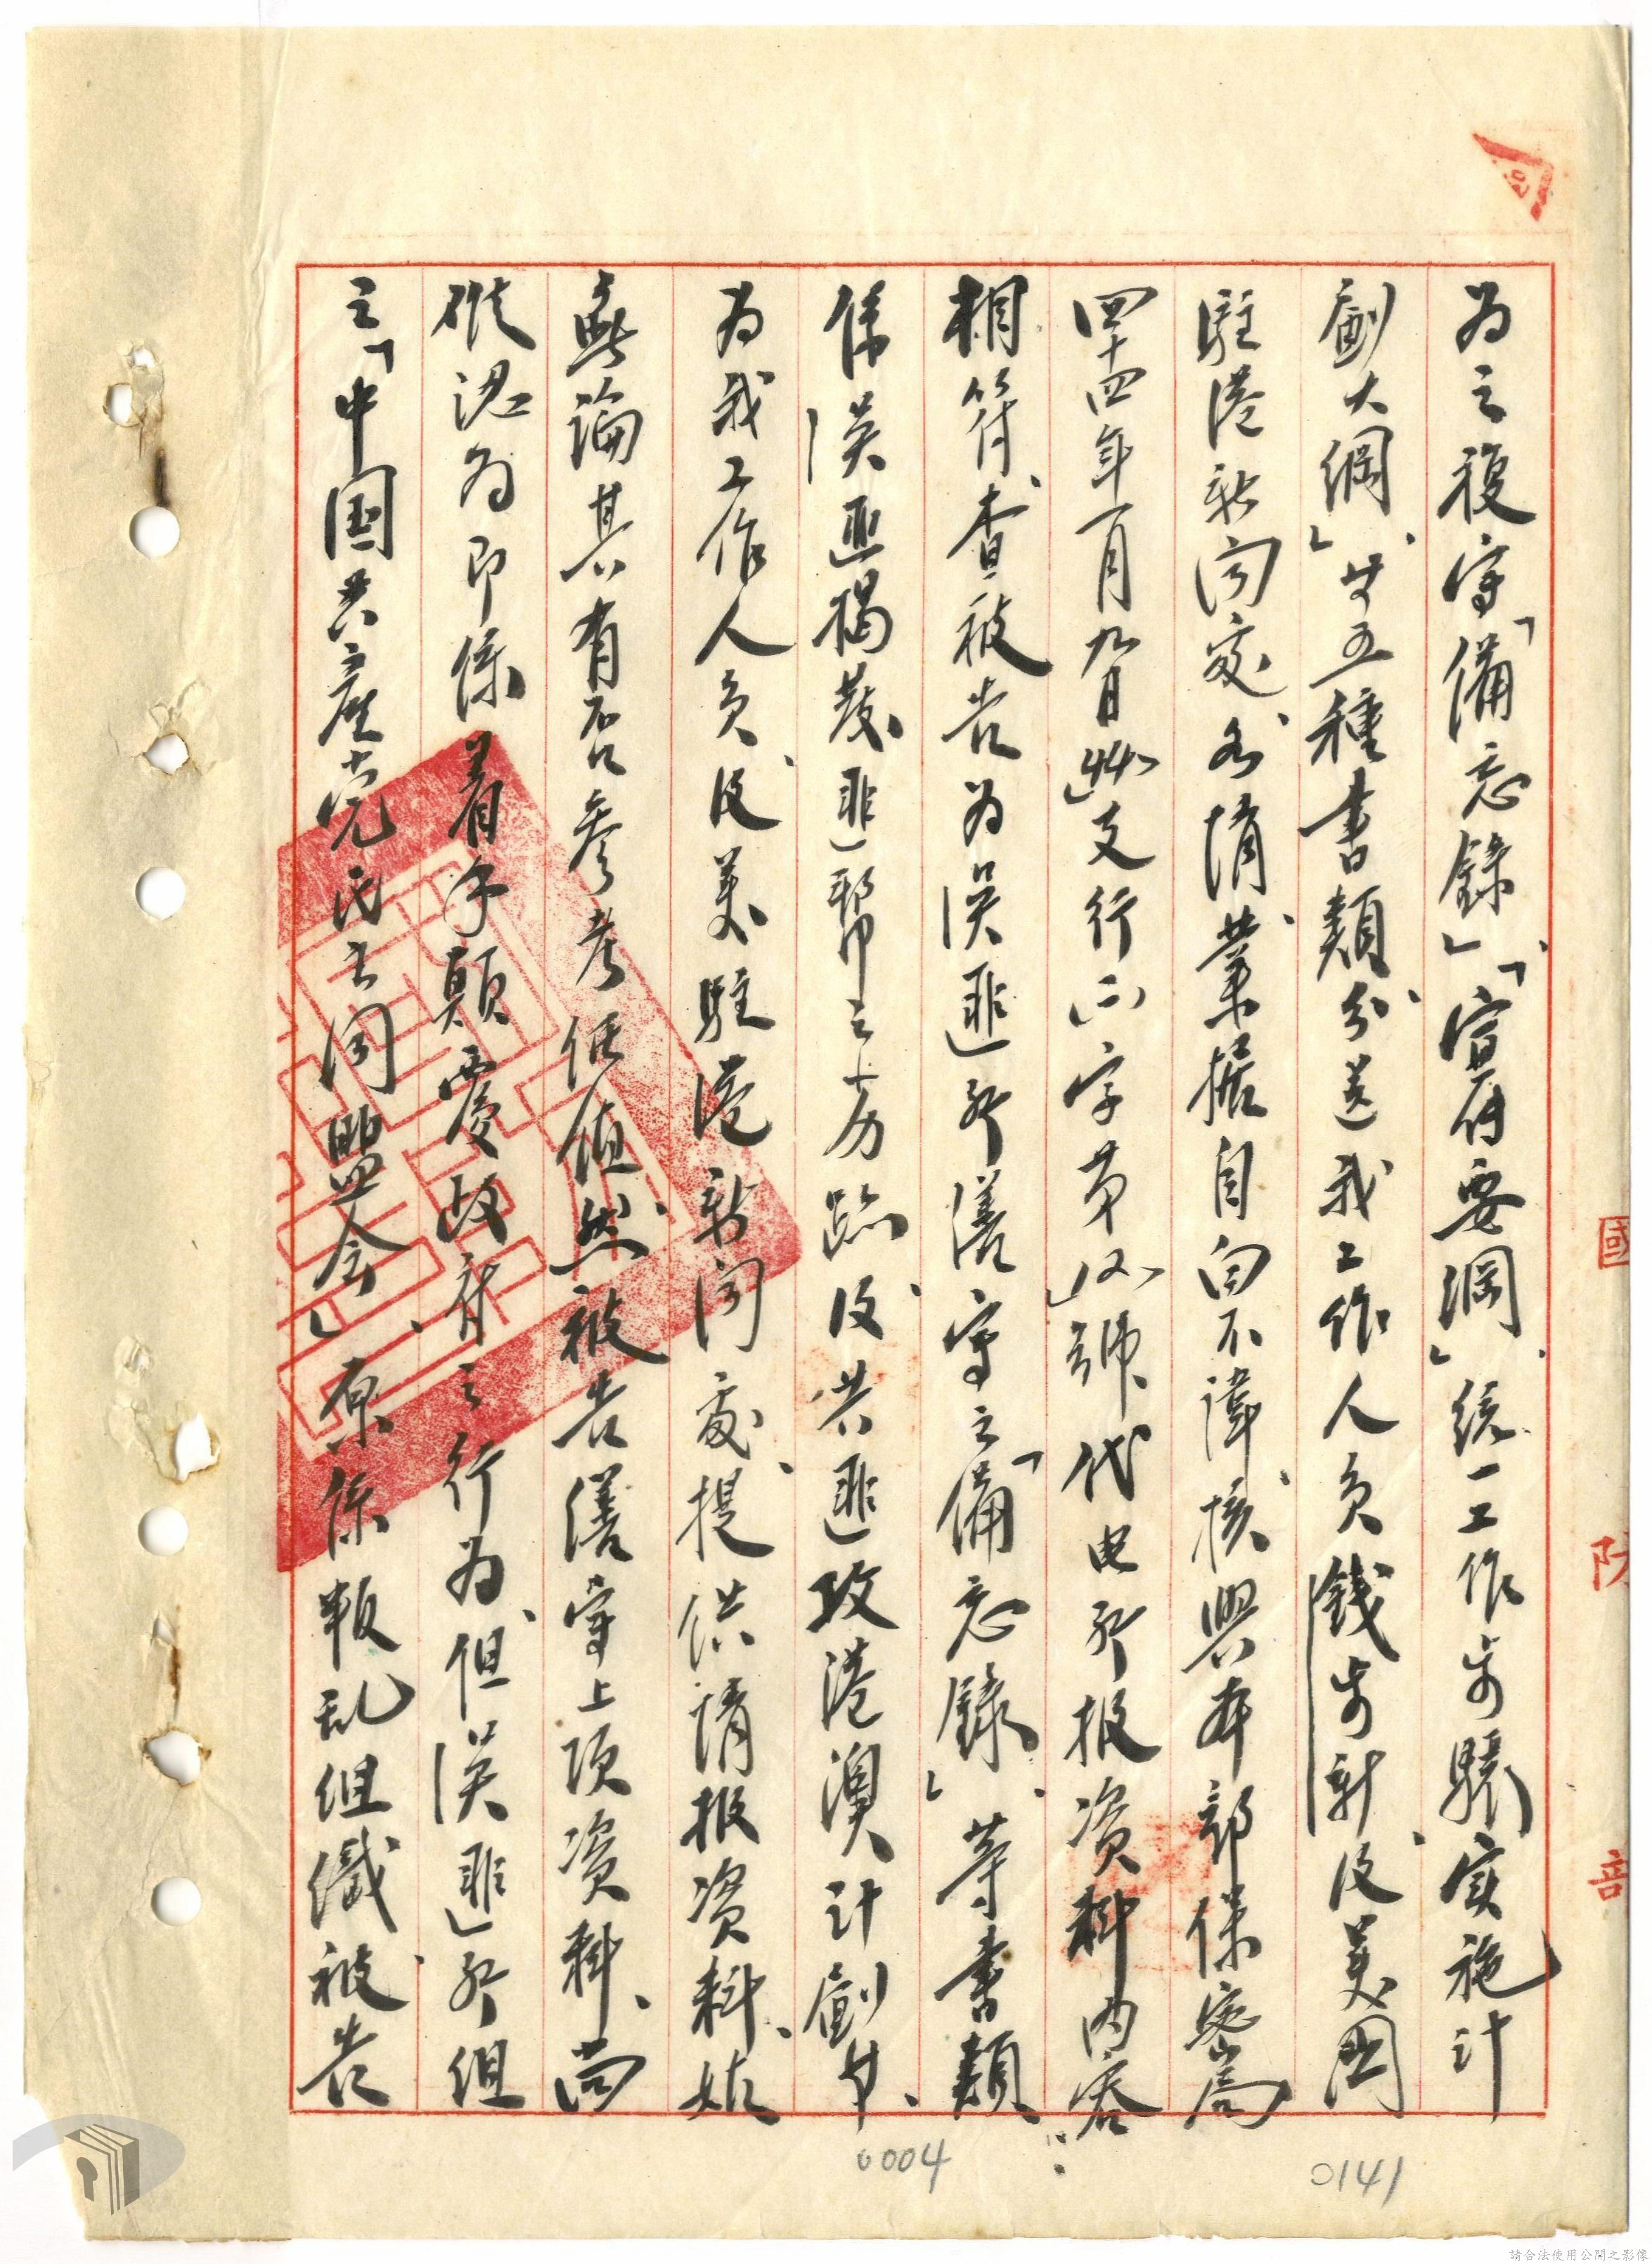 為之複寫「備忘錄」、「宣傳要綱」、統一工作步驟實施計
劃大綱」、廿五種書類、分送我工作人員錢步新、及美國
駐港新聞處、各情、業據自白不諱、核與本部保密局
四十四年一月九日 支行 字第 號代電所报資料內容
相符、查被告為漢匪所繕寫之「備忘錄」、等書類
係漢匪揭發匪郵之 跡、及共匪攻港澳計劃、
為我工作人員、及美駐港新聞處、提供情报資料、姑
無論其有否參考価值、然被告繕寫上項資料、尚
難認為即係着手顛覆政府之行為、但漢匪所組
之「中国共產党民主同盟会」、原係叛乱组織、被告
國 防 部
0004
0141
請合法使用公開之影像